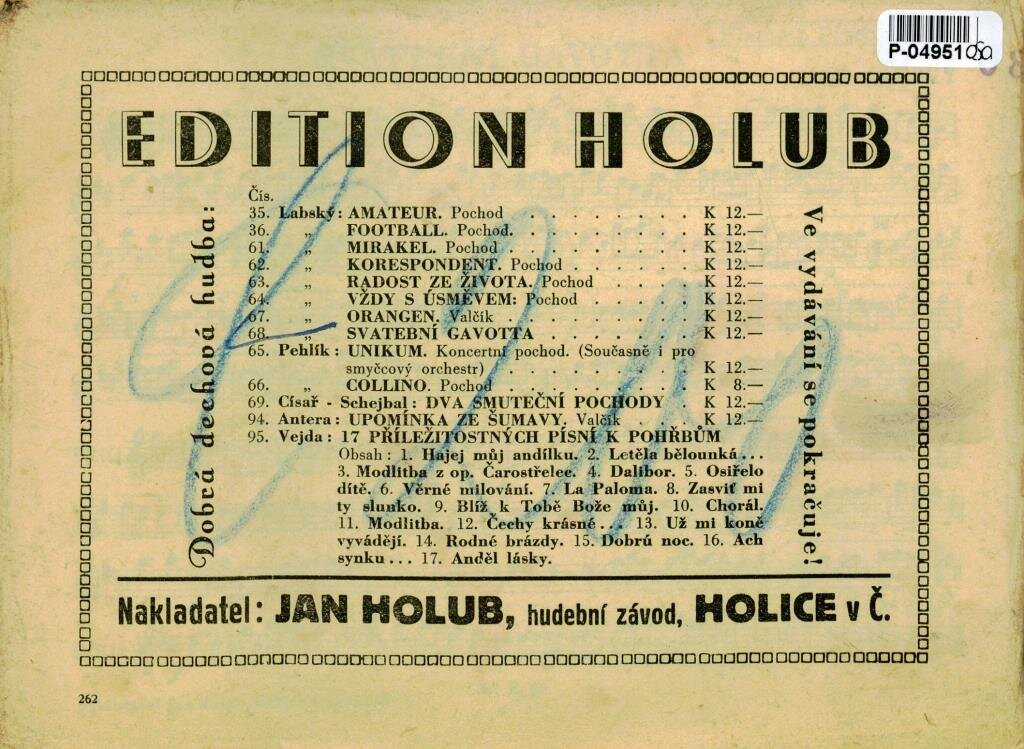 P-04951
EDITION HOLUB
Dobrá dechová hudba:
Čís.
35. Labský: AMATEUR. Pochod . . . . . . . K 12.—
36. „ FOOTBALL. Pochod. . . . . . . . K 12.—
61. „ MIRAKEL. Pochod . . . . . . . . K 12.—
62. „ KORESPONDENT. Pochod . . . . . . K 12.—
63. „ RADOST ZE ŽIVOTA. Pochod . . . . K 12.—
64. „ VŽDY S ÚSMĚVEM: Pochod . . . . . K 12.—
67. „ ORANGEN. Valčík . . . . . . . . K 12.—
68. „ SVATEBNÍ GAVOTTA . . . . . . K 12.—
65. Pehlík: UNIKUM. Koncertní pochod. (Současně i pro
smyčcový orchestr) . . . . . . . . K 12.—
66. „ COLLINO. Pochod . . . . . . . . K 8:—
69. Císař - Schejbal: DVA SMUTEČNÍ POCHODY . K 12.—
94. Antera: UPOMÍNKA ZE ŠUMAVY. Valčík . . . K 12.—
95. Vejda: 17 PŘÍLEŽITOSTNÝCH PÍSNÍ K POHŘBŮM
Obsah: 1. Hajej můj andílku. 2. Letěla bělounká...
3. Modlitba z op. Čarostřelec. 4. Dalibor. 5. Osiřelo
dítě. 6. Věrné milování. 7. La Paloma. 8. Zasviť mi
ty slunko. 9. Blíž k Tobě Bože můj. 10. Chorál.
11. Modlitba. 12. Čechy krásné... 13. Už mi koně
vyvádějí. 14. Rodné brázdy. 15. Dobrú noc. 16. Ach
synku... 17. Anděl lásky.
Ve vydávání se pokračuje!
Nakladatel: JAN HOLUB, hudební závod, HOLICE v Č.
262